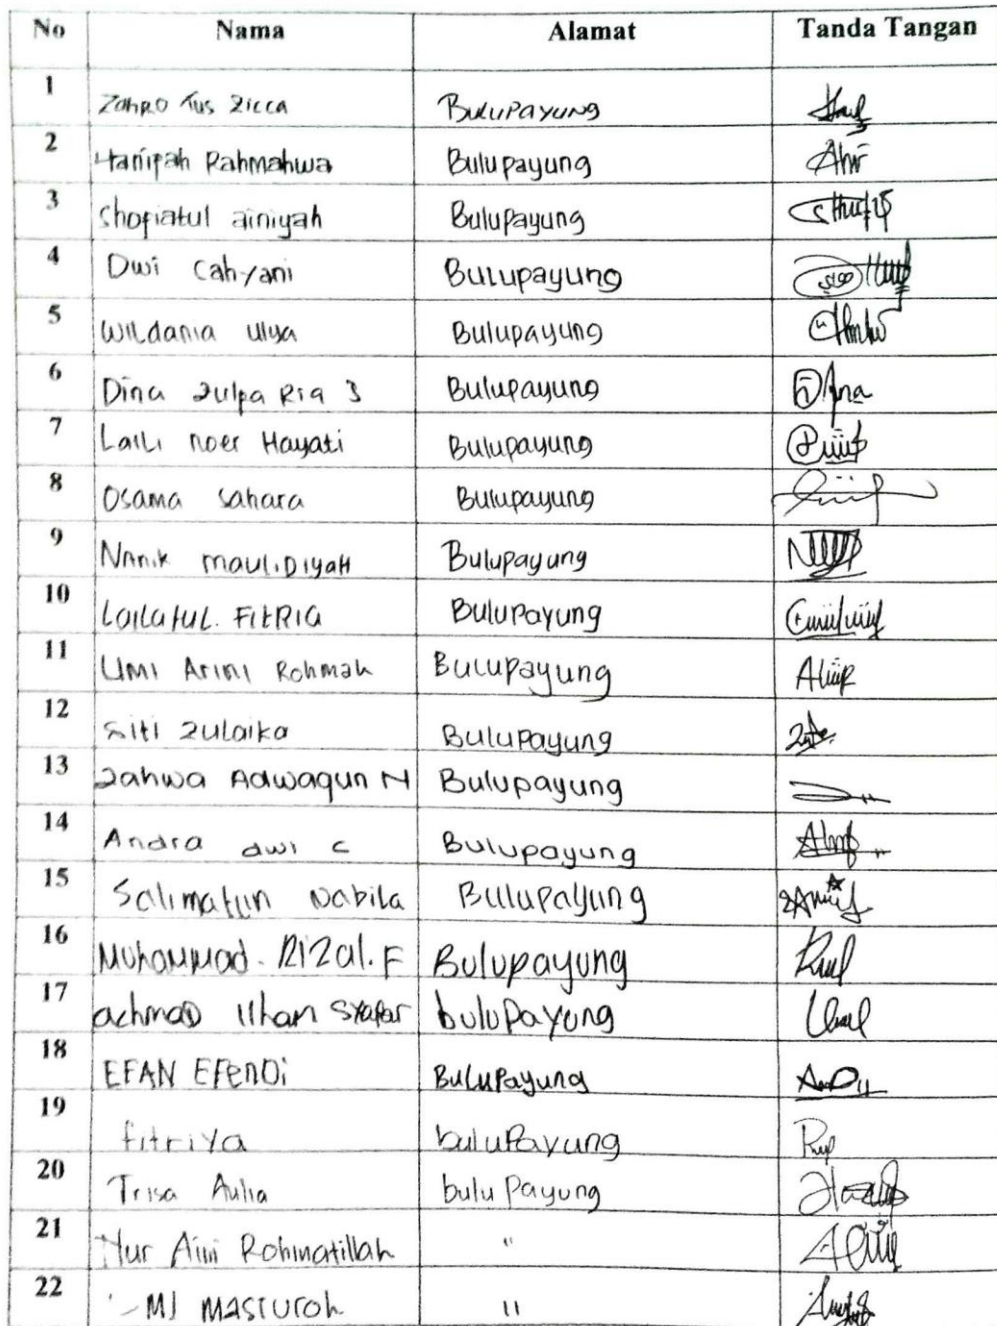 No Nama Alamat Tanda Tangan
1 Zahro tus zicca Bulupayung
2 Hanipah Rahmahwa Bulupayung
3 Shopiatul ainiyah Bulupayung
4 Dwi Cahyani Bulupayung
5 Wildania ulya Bulupayung
6 Dina zulpa Ria S Bulupayung
7 Laili noer Hayati Bulupayung
8 Osama Sahara Bulupayung
9 Nanik mauliDiyaH Bulupayung
10 Lailatul. FitRia Bulupayung
11 Umi Arini Rohmah Bulupayung
12 Siti zulaika Bulupayung
13 Zahwa Adwaqun N Bulupayung
14 Andra dwi c Bulupayung
15 Salimatun Nabila Bulupayung
16 Muhammad. Rizal. F Bulupayung
17 achmaD Ilham Syafar bulupayung
18 EFAN EFenDi Bulupayung
19 fitriya bulupayung
20 Trisa Aulia bulu payung
21 Nur Aini Rohmatillah "
22 masturoh "